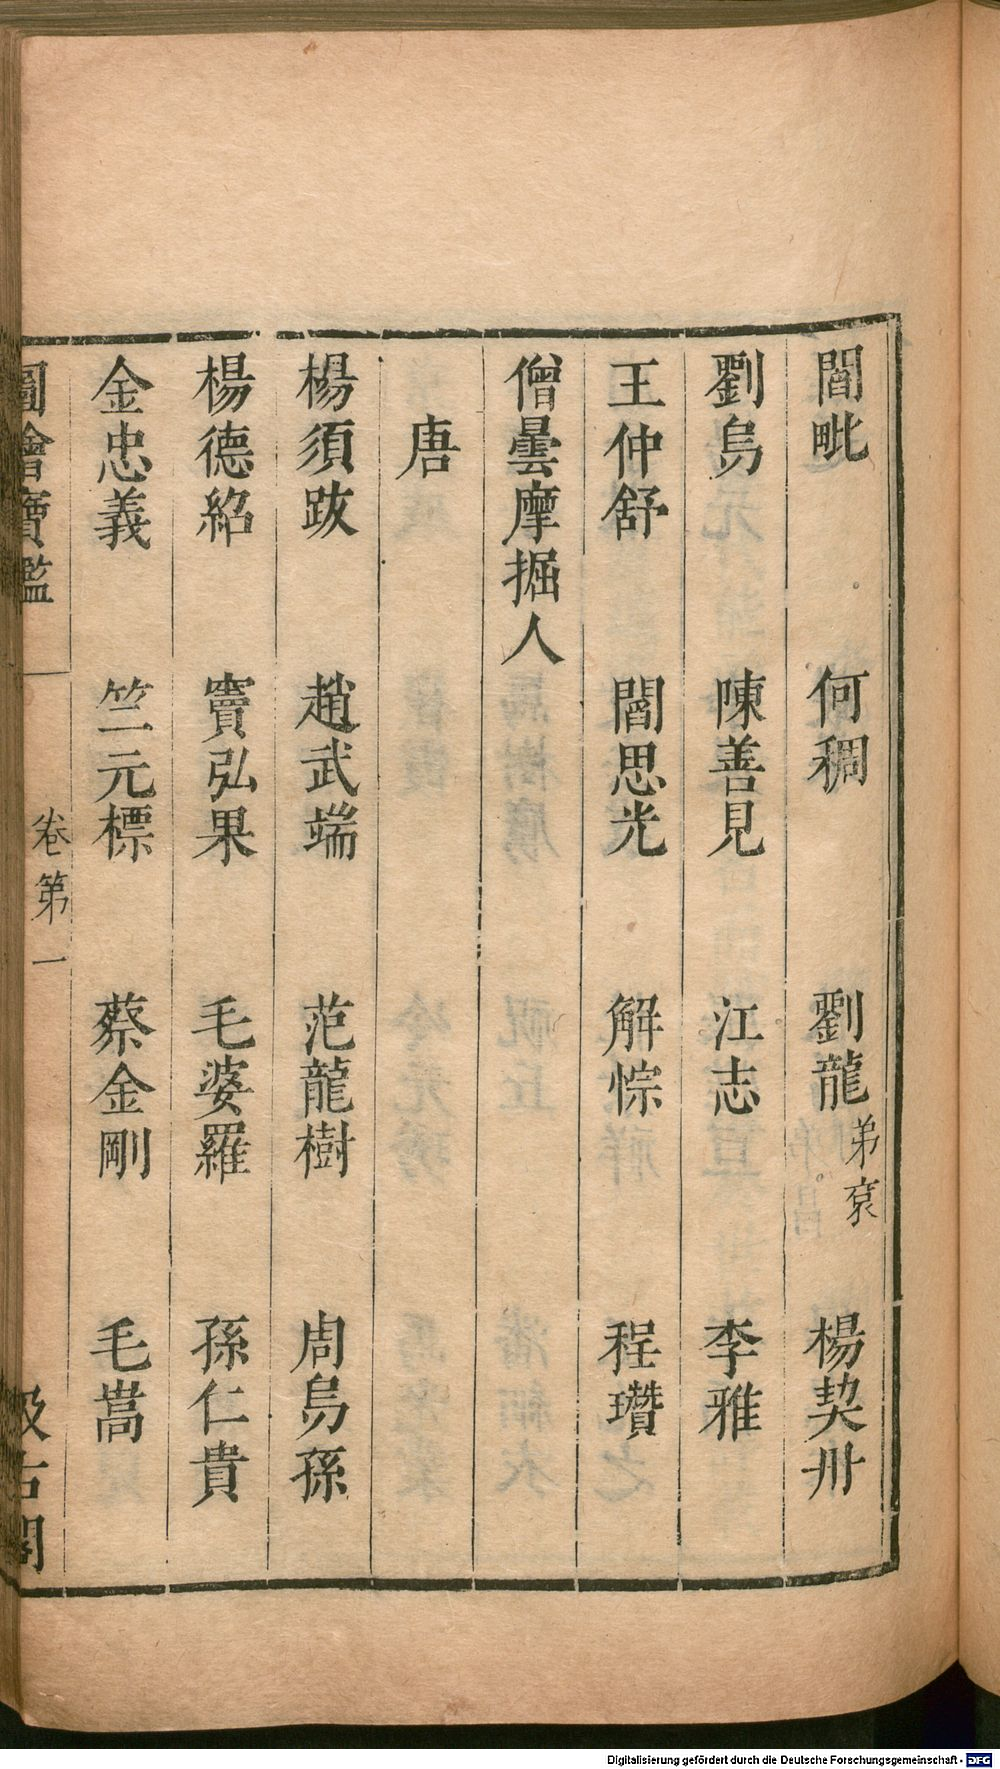 閻毗　何稠　劉龍弟袞　楊契丹
劉烏　陳善見　江志　李雅
王仲舒　閻思光　解悰　程瓚
僧曇摩掘人
唐
楊須跋　趙武端　范龍樹　周烏孫
楊德紹　竇弘果　毛婆羅　孫仁貴
金忠義　竺元標　蔡金剛　毛嵩
圖繪寶鑑　卷第一　汲古閣
Digitalisierung gefördert durch die Deutsche Forschungsgemeinschaft - DFG